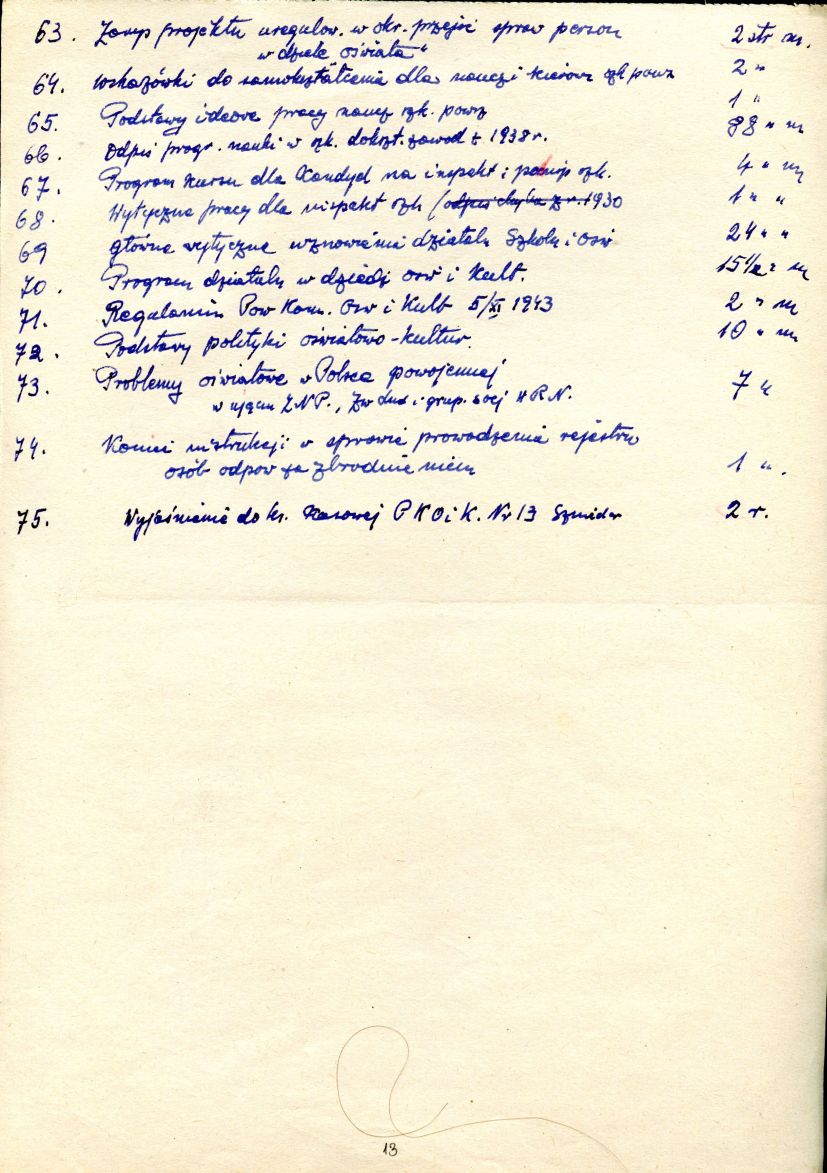 63. Zarys projektu uregulow. w okr. przejść spraw person 2 str m.
w dziele „oświata"
64. Wskazówki do samokształcenia dla naucz i kierow szk powsz 2 "
65. Podstawy ideowe pracy naucz szk. powsz 1 "
66. Odpis progr. nauki w szk. dokszt. zawod z 1938 r. 88 " m
67. Program kursu dla Kandyd na inspekt i podinsp szk. 4 " m
68. Wytyczne pracy dla inspekt szk (odpis chyba z r. 1930 1 " "
69 główne wytyczne wznowienia działaln Szkoln i ośw 24 " "
70. Program działaln w dziedz ośw i Kult. 15 1/2 " m
71. Regulamin Pow Kom. Ośw i Kult 5/XI 1943 2 " m
72. Podstawy polityki oświatowo-kultur. 10 " m
73. Problemy oświatowe w Polsce powojennej 7 "
w ujęciu Z.N.P., i grup. socj R.N.
74. instrukcji w sprawie prowadzenia rejestru
osób odpow za zbrodnie niem 1 ".
75. Wyjaśnienie do ks. Kasowej P K O i K. Nr 13 2 r.
13